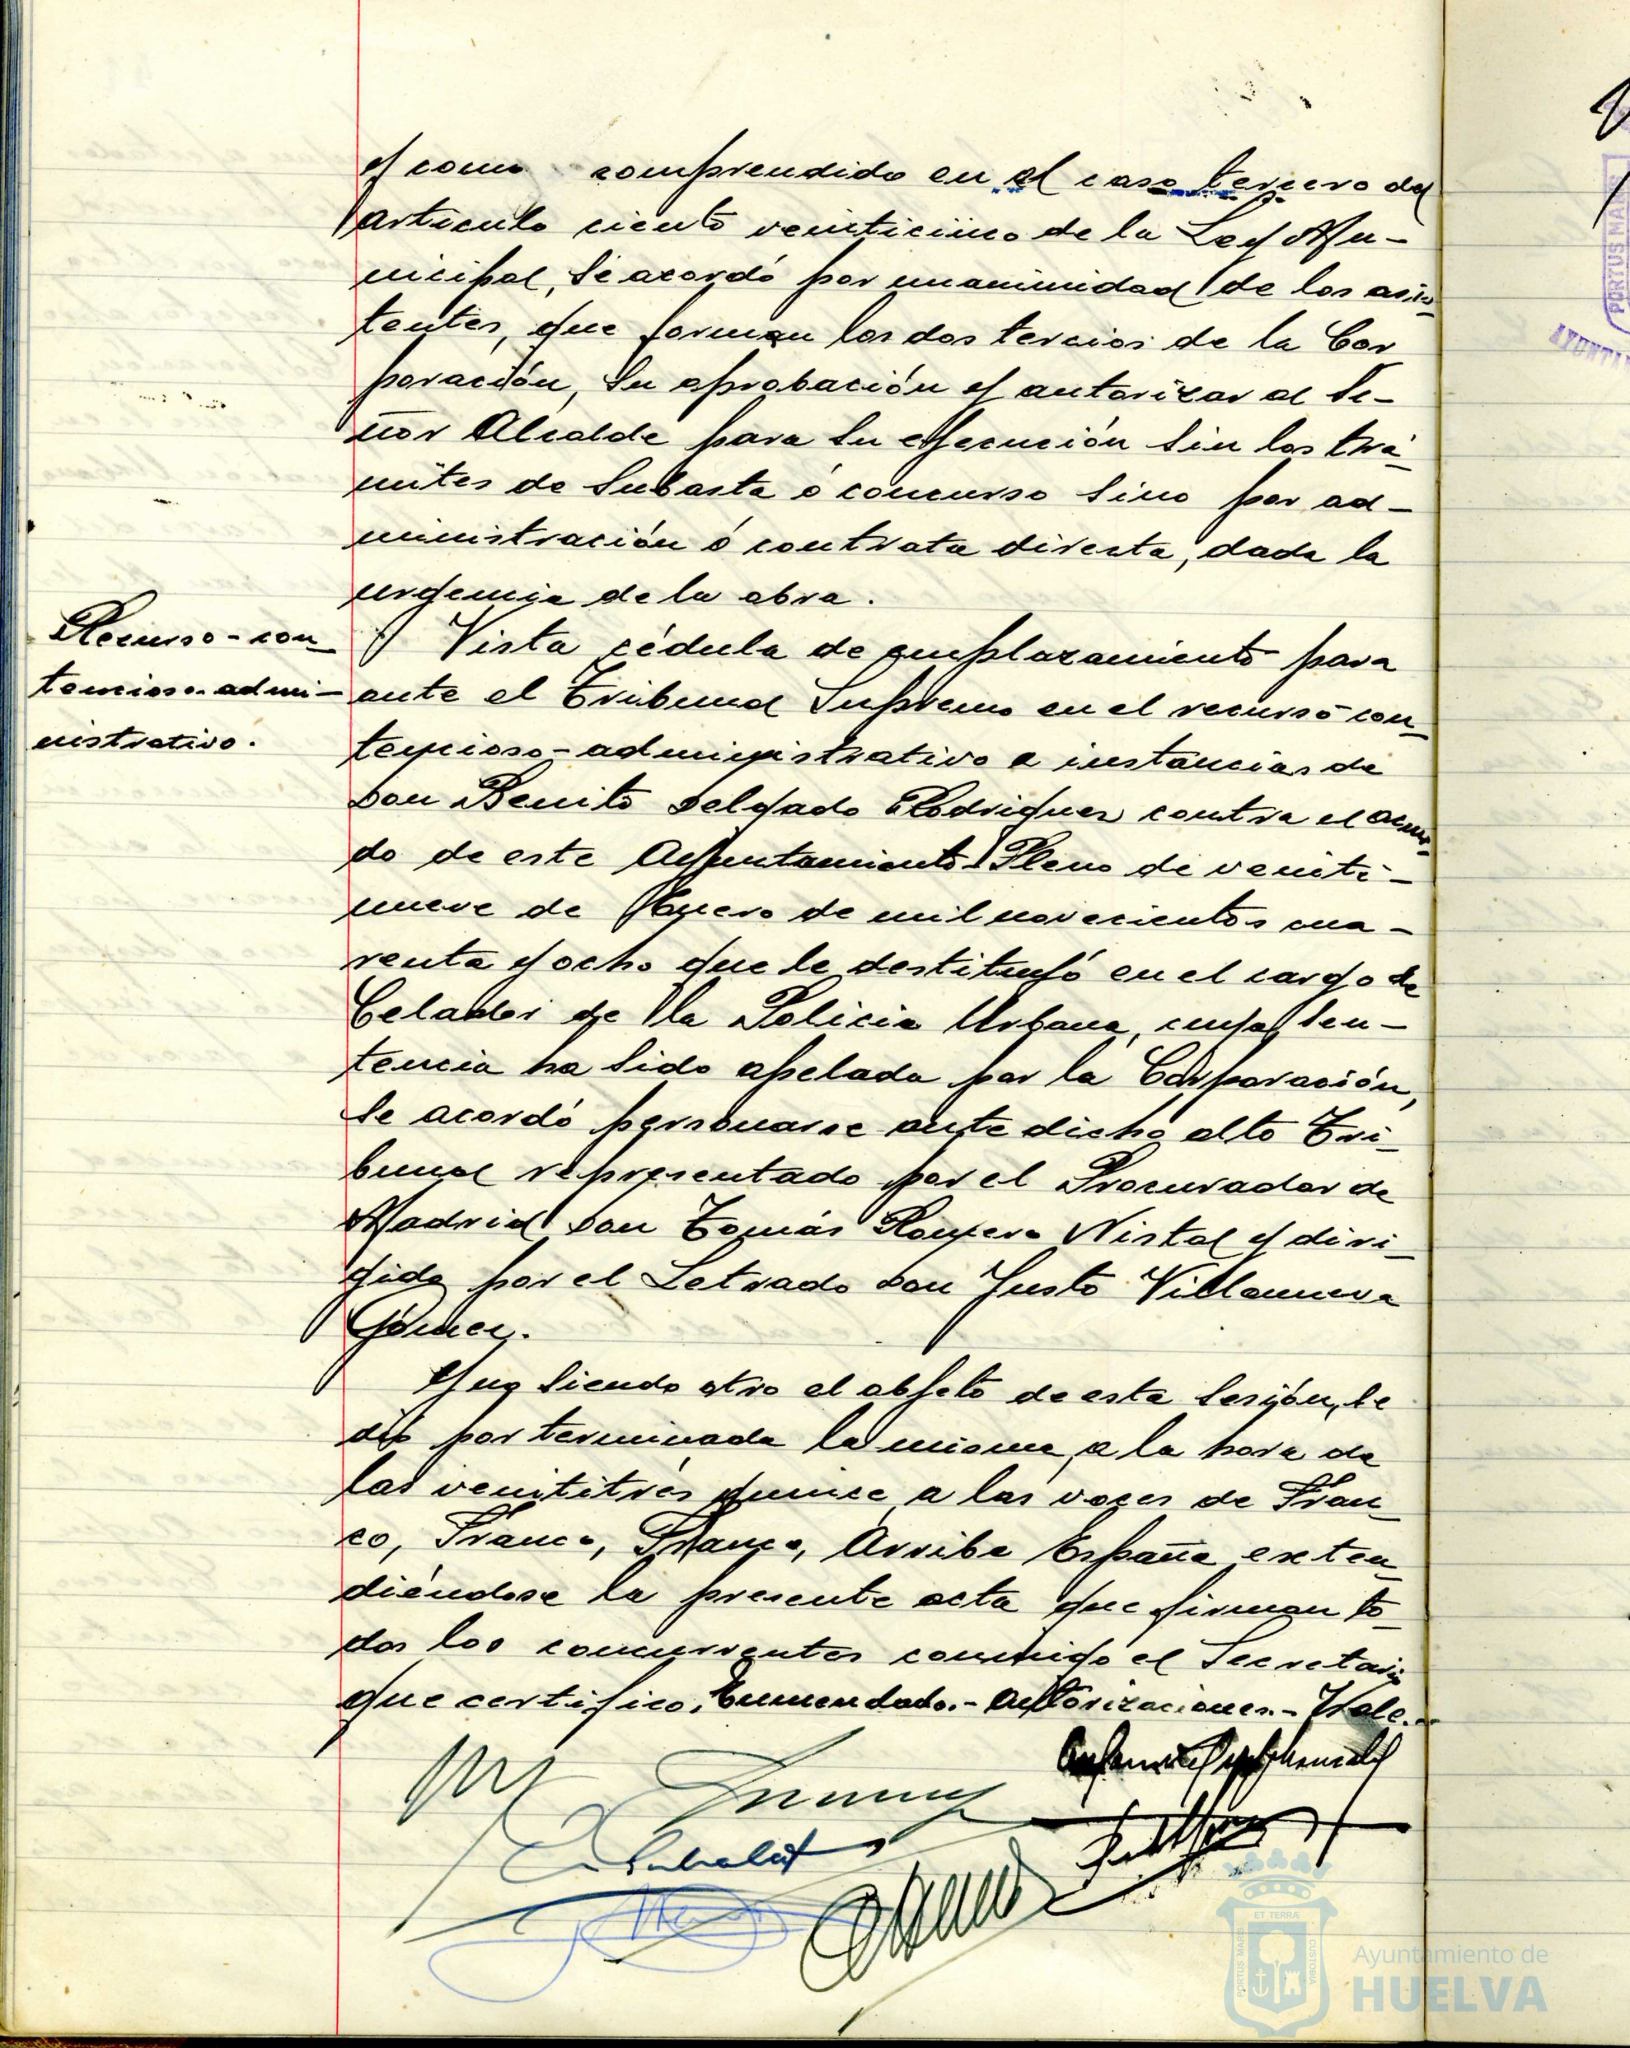 y como comprendido en el caso tercero del
artículo ciento veinticinco de la Ley Mu-
nicipal, se acordó por unanimidad de los asis-
tentes, que forman los dos tercios de la Cor
poración, su aprobación y autorizar al Se-
ñor Alcalde para su ejecución sin los trá-
mites de subasta ó concurso sino por ad-
ministración ó contrata directa, dada la
urgencia de la obra.
Recurso-con-
tencioso-admi-
nistrativo.
Vista cédula de emplazamiento para
ante el Tribunal Supremo en el recurso con-
tencioso-administrativo a instancias de
Don Benito Delgado Rodriguez contra el acuer-
do de este Ayuntamiento Pleno de veinti-
nueve de Enero de mil novecientos cua-
renta y ocho que le destituyó en el cargo de
Celador de la Policia Urbana, cuya sen-
tencia ha sido apelada por la Corporación,
se acordó personarse ante dicho alto Tri-
bunal representado por el Procurador de
Madrid Don Tomás Romero Nistal y diri-
gido por el Letrado Don Justo Villanueva
Gómez.
Y no siendo otro el objeto de esta sesión, se
dió por terminada la misma, a la hora de
las veintitrés quince, a las voces de Fran-
co, Franco, Franco, Arriba España, exten-
diéndose la presente acta que firman to-
dos los concurrentes conmigo el Secretario
que certifico. Enmendado.- Autorizaciones.- Vale.-
PORTUS MARIS
AYUNTAM
ET TERRA
PORTUS MARIS
CUSTODIA
Ayuntamiento de
HUELVA